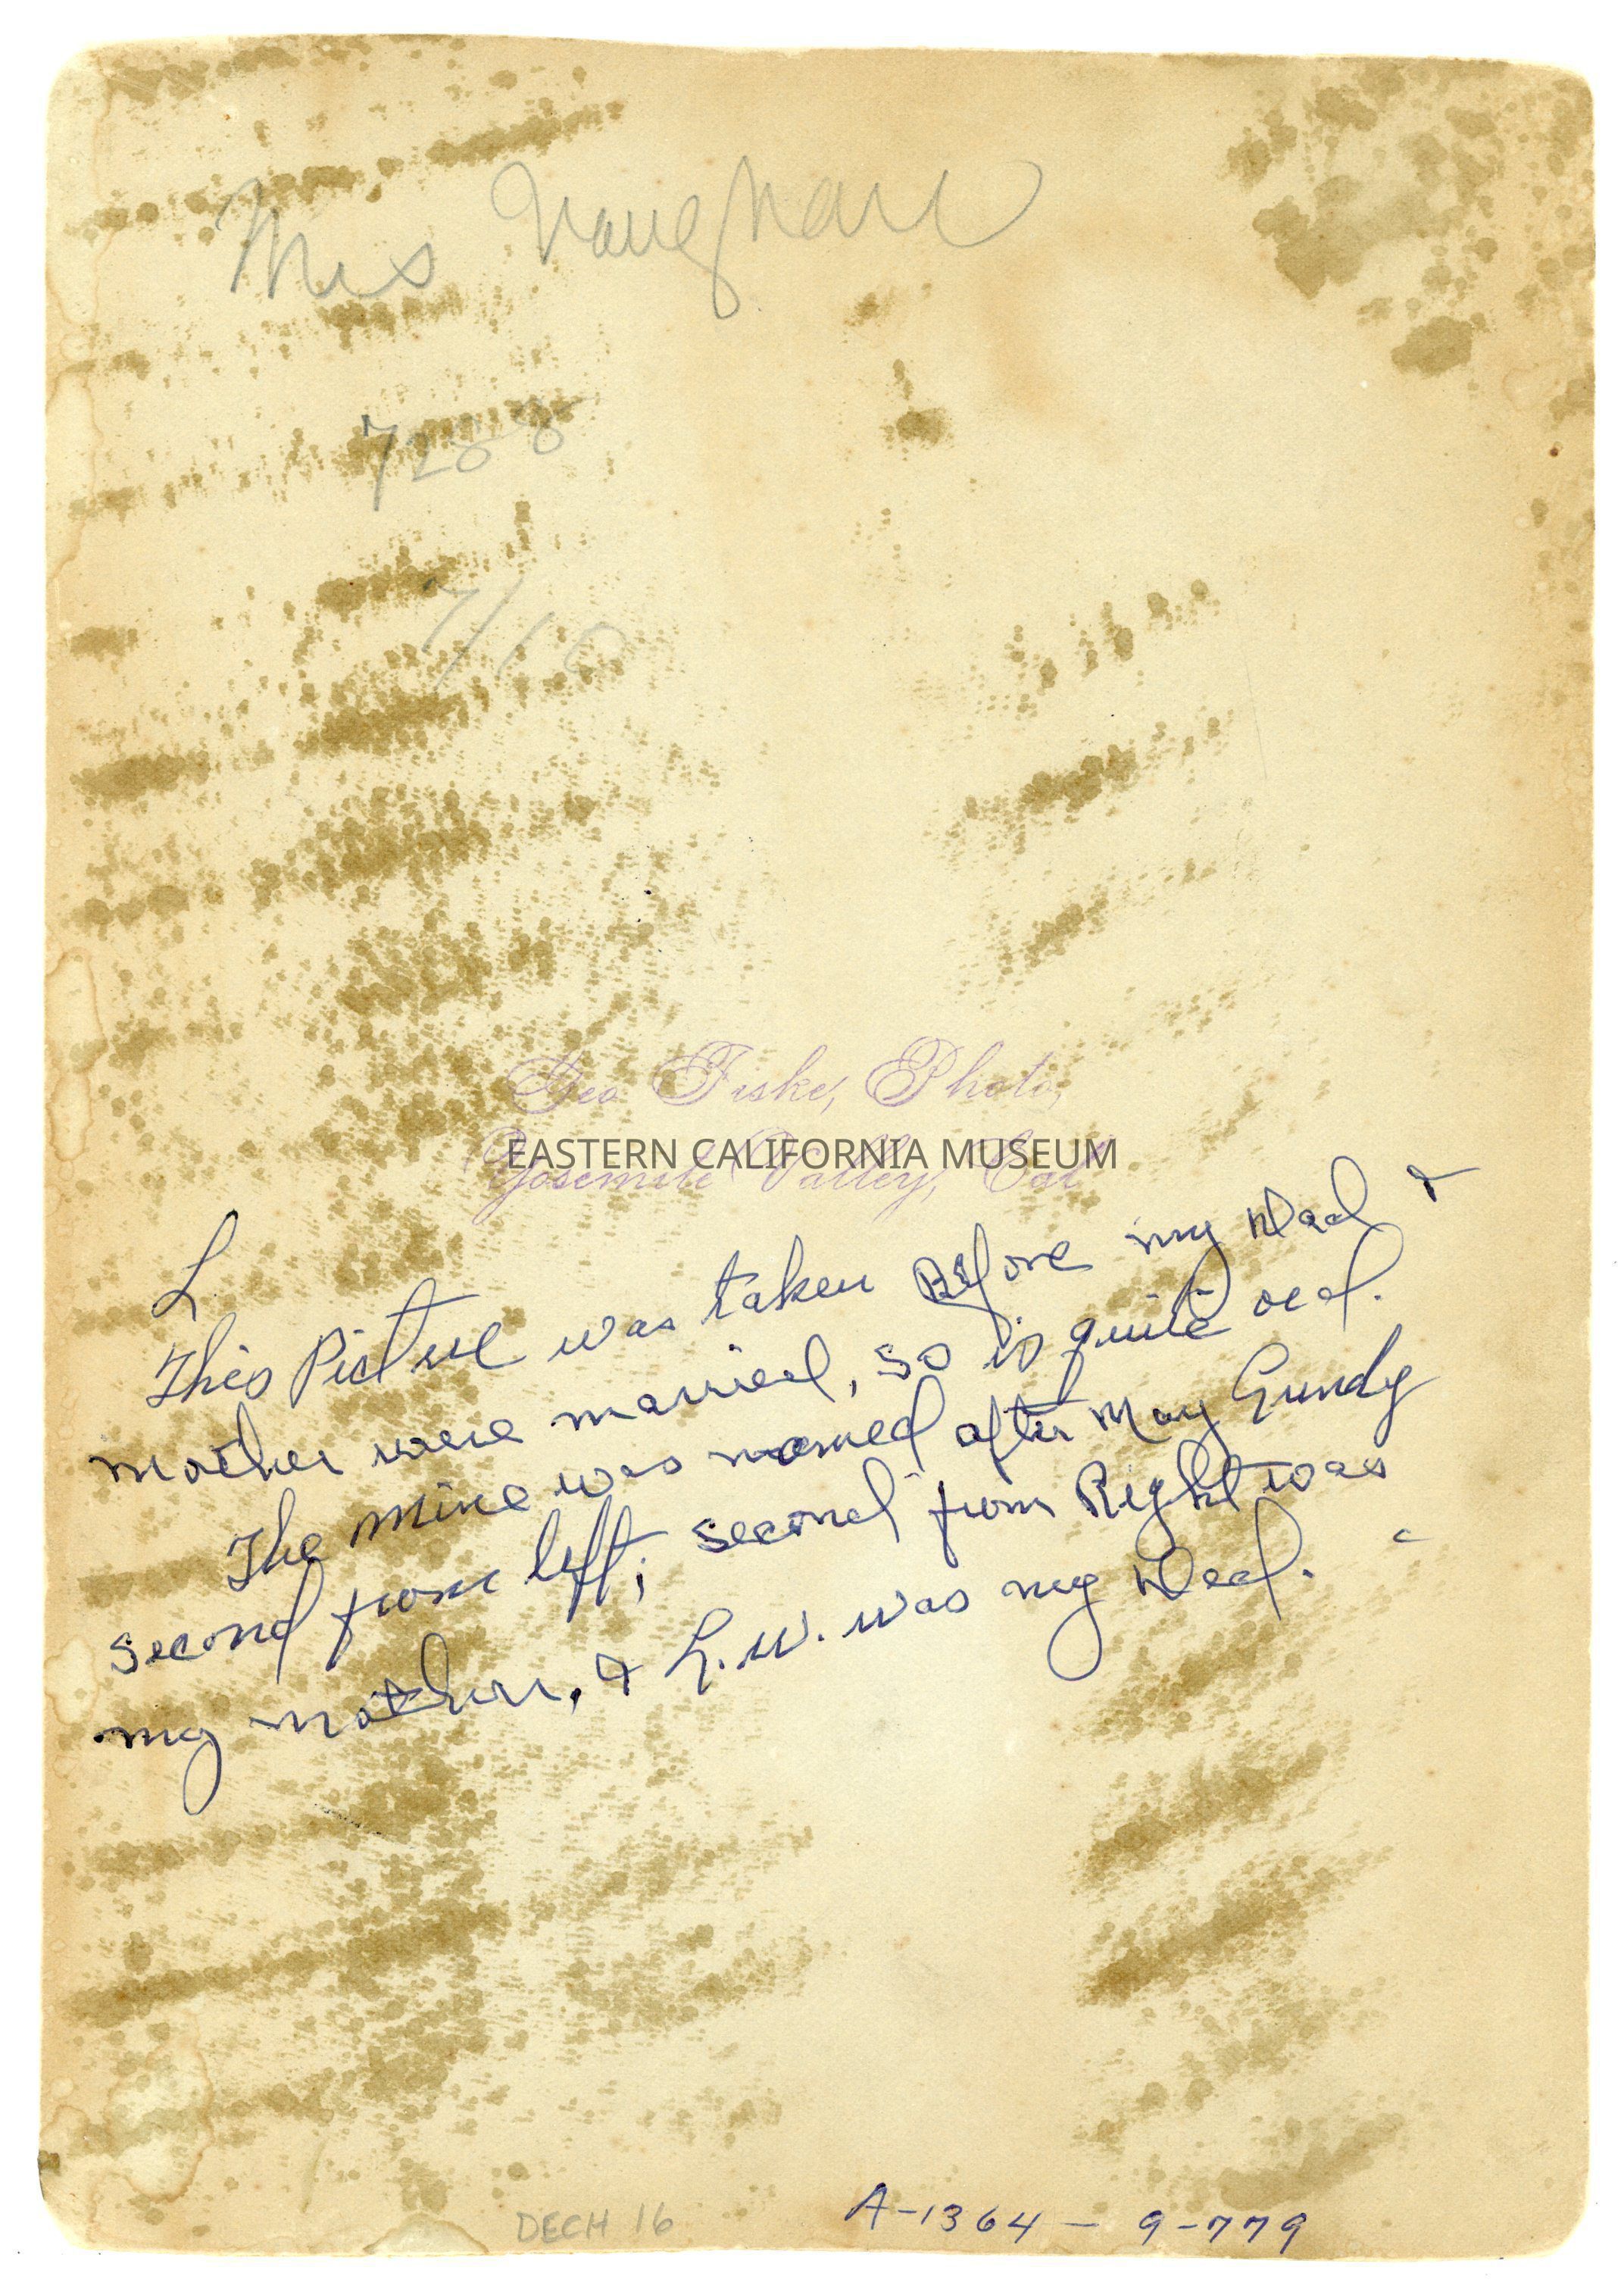 Mrs Vaughan
7288
7/10
Geo Fiske, Photo,
EASTERN CALIFORNIA MUSEUM
Yosemite Valley, Cal
L
This Picture was taken Before my Dad &
mother were married, so is quite old.
The Mine was named after May Gundy
second from left; second from Right was
my mother, & L.W. was my Dad.
DECH 16
A-1364 - 9-779